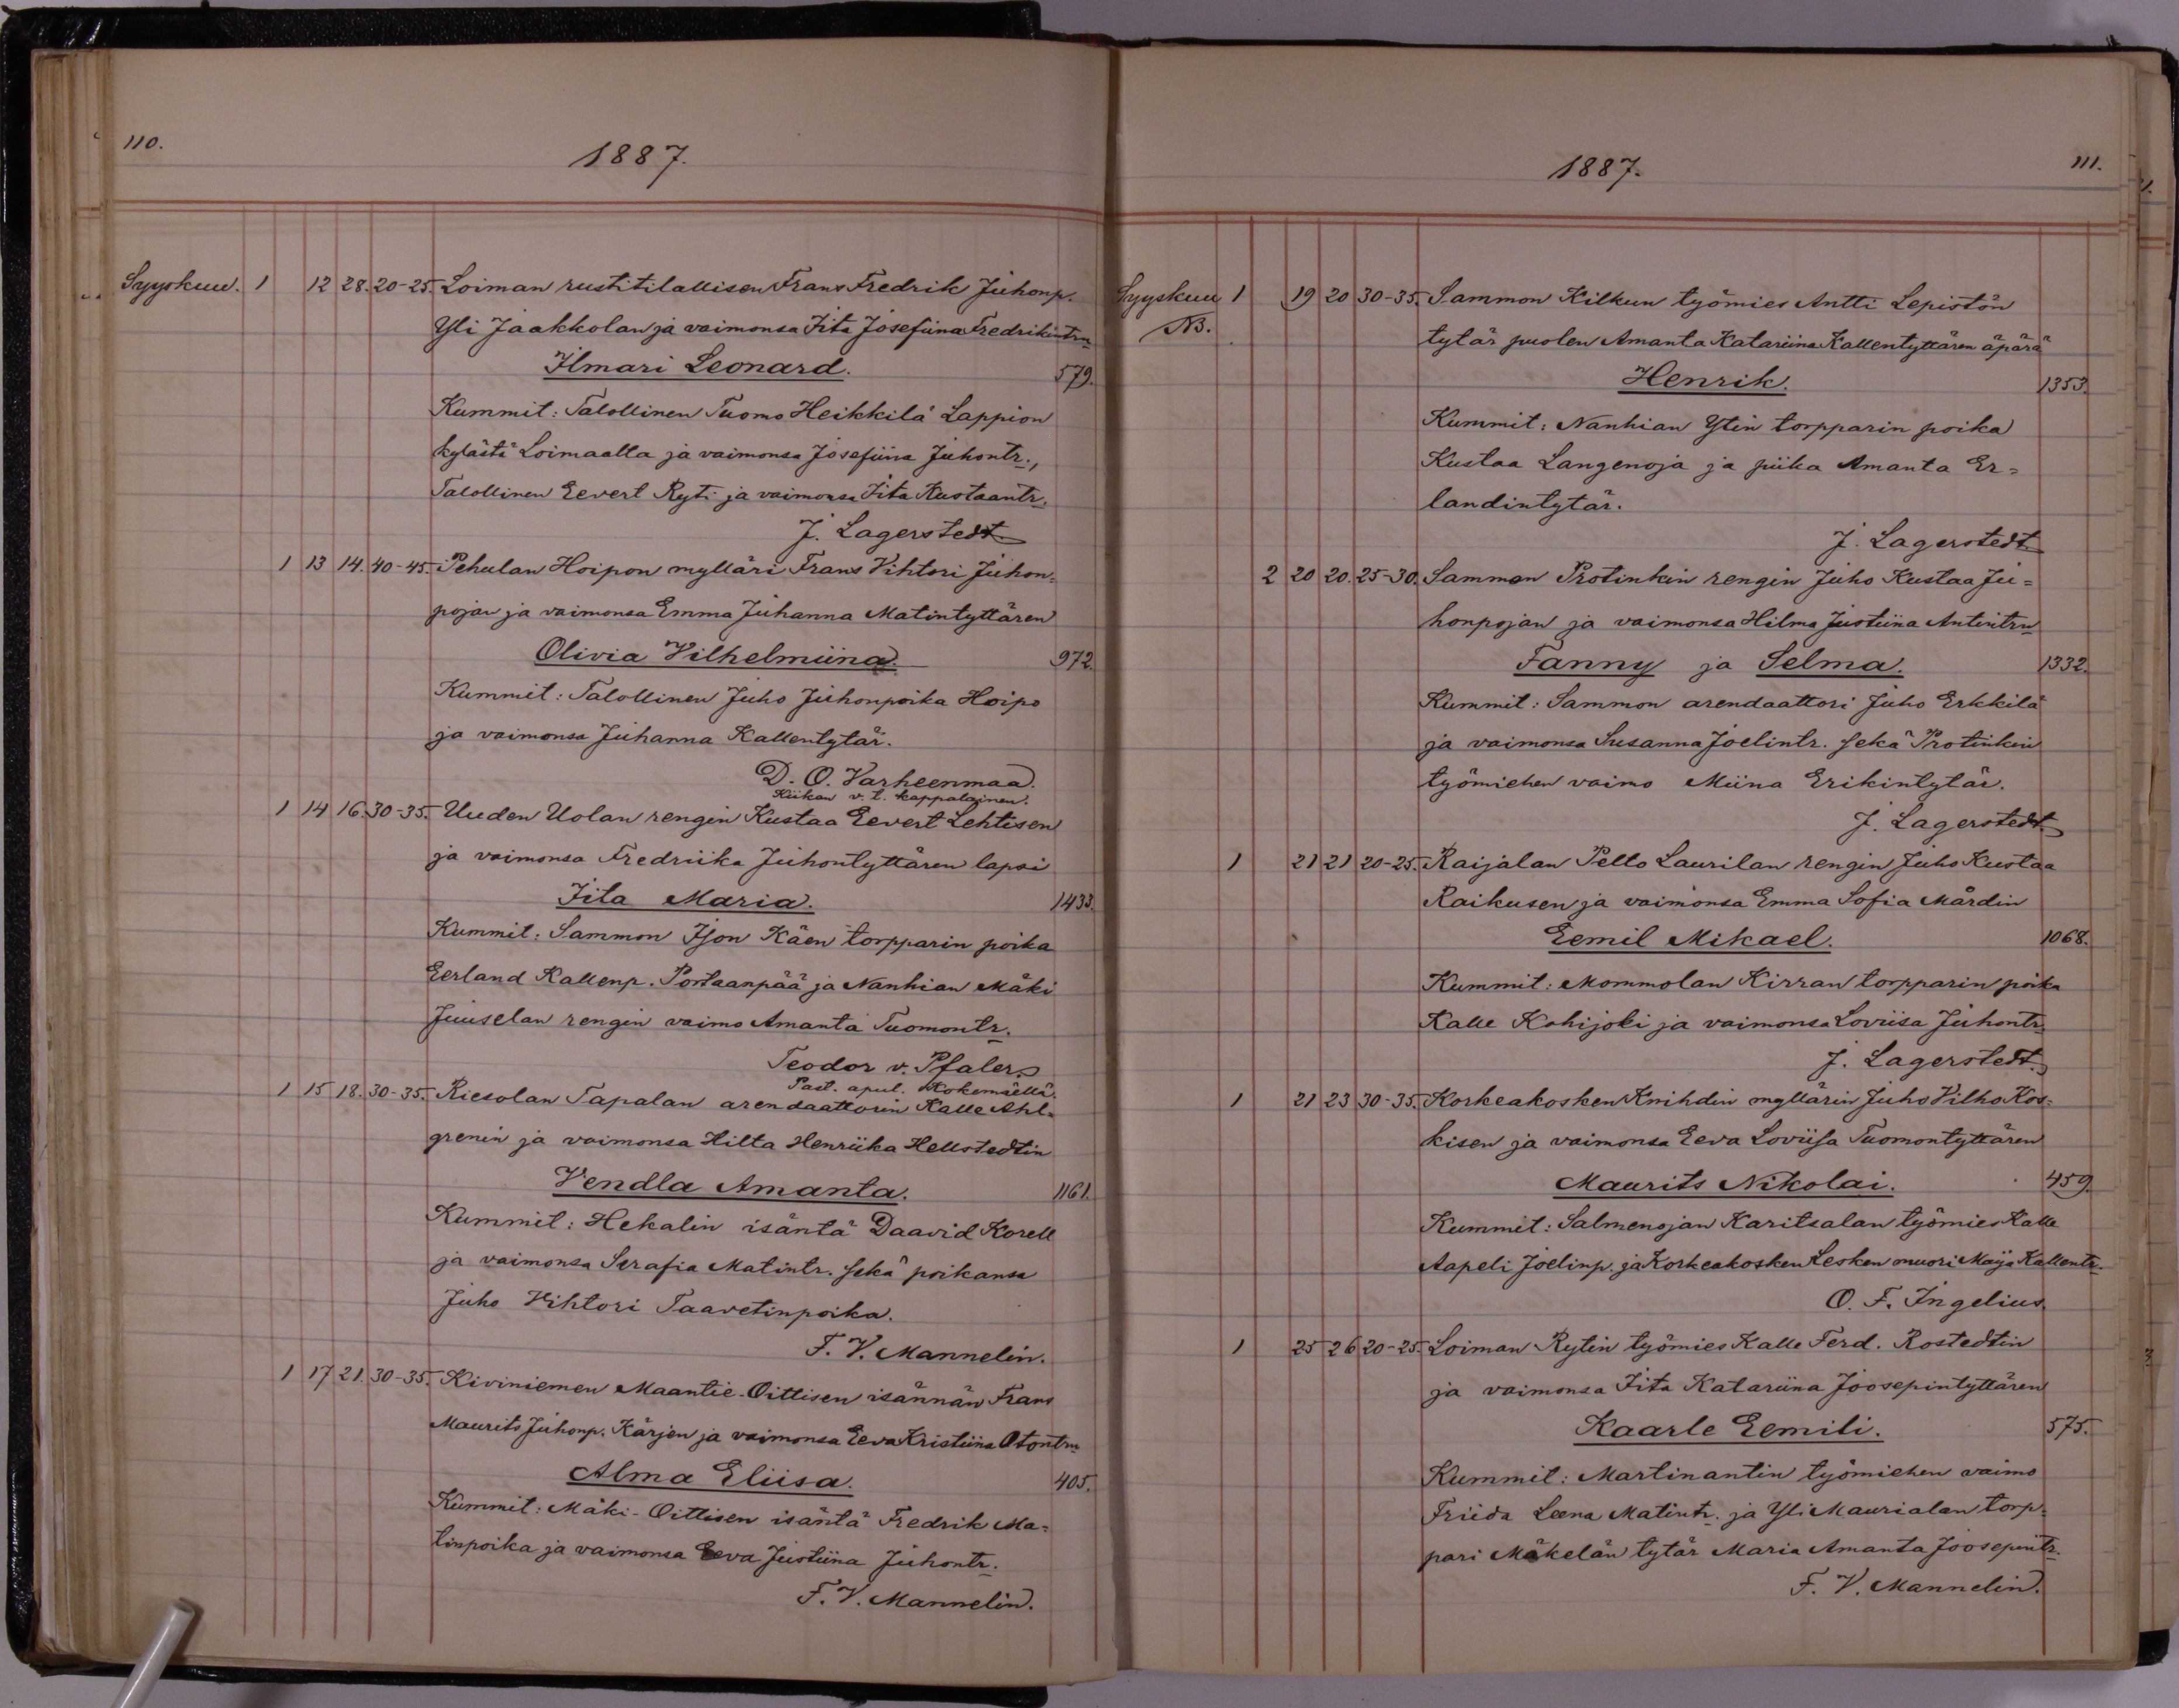 110.
1887.
Syyskuu. 1 12 28. 20-25. Loiman rustitilallisen Frans Fredrik Juhonp.
Yli Jaakkolan ja vaimonsa Iita Josefiina Fredrikintrn
Ilmari Leonard. 579.
Kummit: Talollinen Tuomo Heikkilä Lappion
kylästä Loimaalla ja vaimonsa Josefiina Juhontr.,
Talollinen Eevert Ryti ja vaimonsa Iita Kustaantr.
J. Lagerstedt.
1 13 14. 40-45. Pehulan Hoipon mylläri Frans Vihtori Juhon=
pojan ja vaimonsa Emma Juhanna Matintyttären
Olivia Vilhelmiina. 972.
Kummit: Talollinen Juho Juhonpoika Hoipo
ja vaimonsa Juhanna Kallentytär.
D. O. Varheenmaa.
Kiikan v. t. kappalainen.
1 14 16. 30-35. Uuden Uolan rengin Kustaa Eevert Lehtisen
ja vaimonsa Fredriika Juhontyttären lapsi
Iita Maria. 1433.
Kummit: Sammon Ison Käen torpparin poika
Eerland Kallenp. Portaanpää ja Nanhian Mäki
Juuselan rengin vaimo Amanta Tuomontr.
Teodor v. Pfaler.
Past. apul. Kokemäellä.
1 15 18. 30-35. Riesolan Tapalan arendaattorin Kalle Ahl=
grenin ja vaimonsa Hilta Henriika Hellstedtin
Vendla Amanta. 1161.
Kummit: Hekalin isäntä Daavid Korell
ja vaimonsa Serafia Matintr. sekä poikansa
Juho Vihtori Taavetinpoika.
F. V. Mannelin.
1 17 21. 30-35. Kiviniemen Maantie-Oittisen isännän Frans
Maurits Juhonp. Kärjen ja vaimonsa Eeva Kristiina Otontrn
Alma Eliisa. 405.
Kummit: Mäki-Oittisen isäntä Fredrik Ma=
tinpoika ja vaimonsa Eeva Justiina Juhontr.
F. V. Mannelin.
1887.
111.
Syyskuu 1 19 20 30-35. Sammon Kilkun työmies Antti Lepistön
NB. tytär puolen Amanta Katariina Kallentyttären äpärä
Henrik. 1353.
Kummit: Nanhian Ytin torpparin poika
Kustaa Langenoja ja piika Amanta Er=
landintytär.
J. Lagerstedt.
2 20 20. 25-30. Sammon Protinkin rengin Juho Kustaa Ju=
honpojan ja vaimonsa Hilma Justiina Antintrn
Fanny ja Selma. 1332.
Kummit: Sammon arendaattori Juho Erkkilä
ja vaimonsa Susanna Joelintr. sekä Protinkin
työmiehen vaimo Miina Erikintytär.
J. Lagerstedt.
1 21 21 20-25. Raijalan Pelto Laurilan rengin Juho Kustaa
Raikusen ja vaimonsa Emma Sofia Mårdin
Eemil Mikael. 1068.
Kummit: Mommolan Kirran torpparin poika
Kalle Kohijoki ja vaimonsa Loviisa Juhontr.
J. Lagerstedt.
1 21 23 30-35. Korkeakosken Knihdin myllärin Juho Vilho Kos=
kisen ja vaimonsa Eeva Loviisa Tuomontyttären
Maurits Nikolai. 459.
Kummit: Salmenojan Karitsalan työmies Kalle
Aapeli Joelinp. ja Korkeakosken Lesken muori Maija Kallentr.
O. F. Ingelius.
1 25 26 20-25. Loiman Rytin työmies Kalle Ferd. Rostedtin
ja vaimonsa Iita Katariina Joosepintyttären
Kaarle Eemili. 575.
Kummit: Martinantin työmiehen vaimo
Friida Leena Matintr. ja Yli Maurialan torp=
pari Mäkelän tytär Maria Amanta Joosepintr.
F. V. Mannelin.